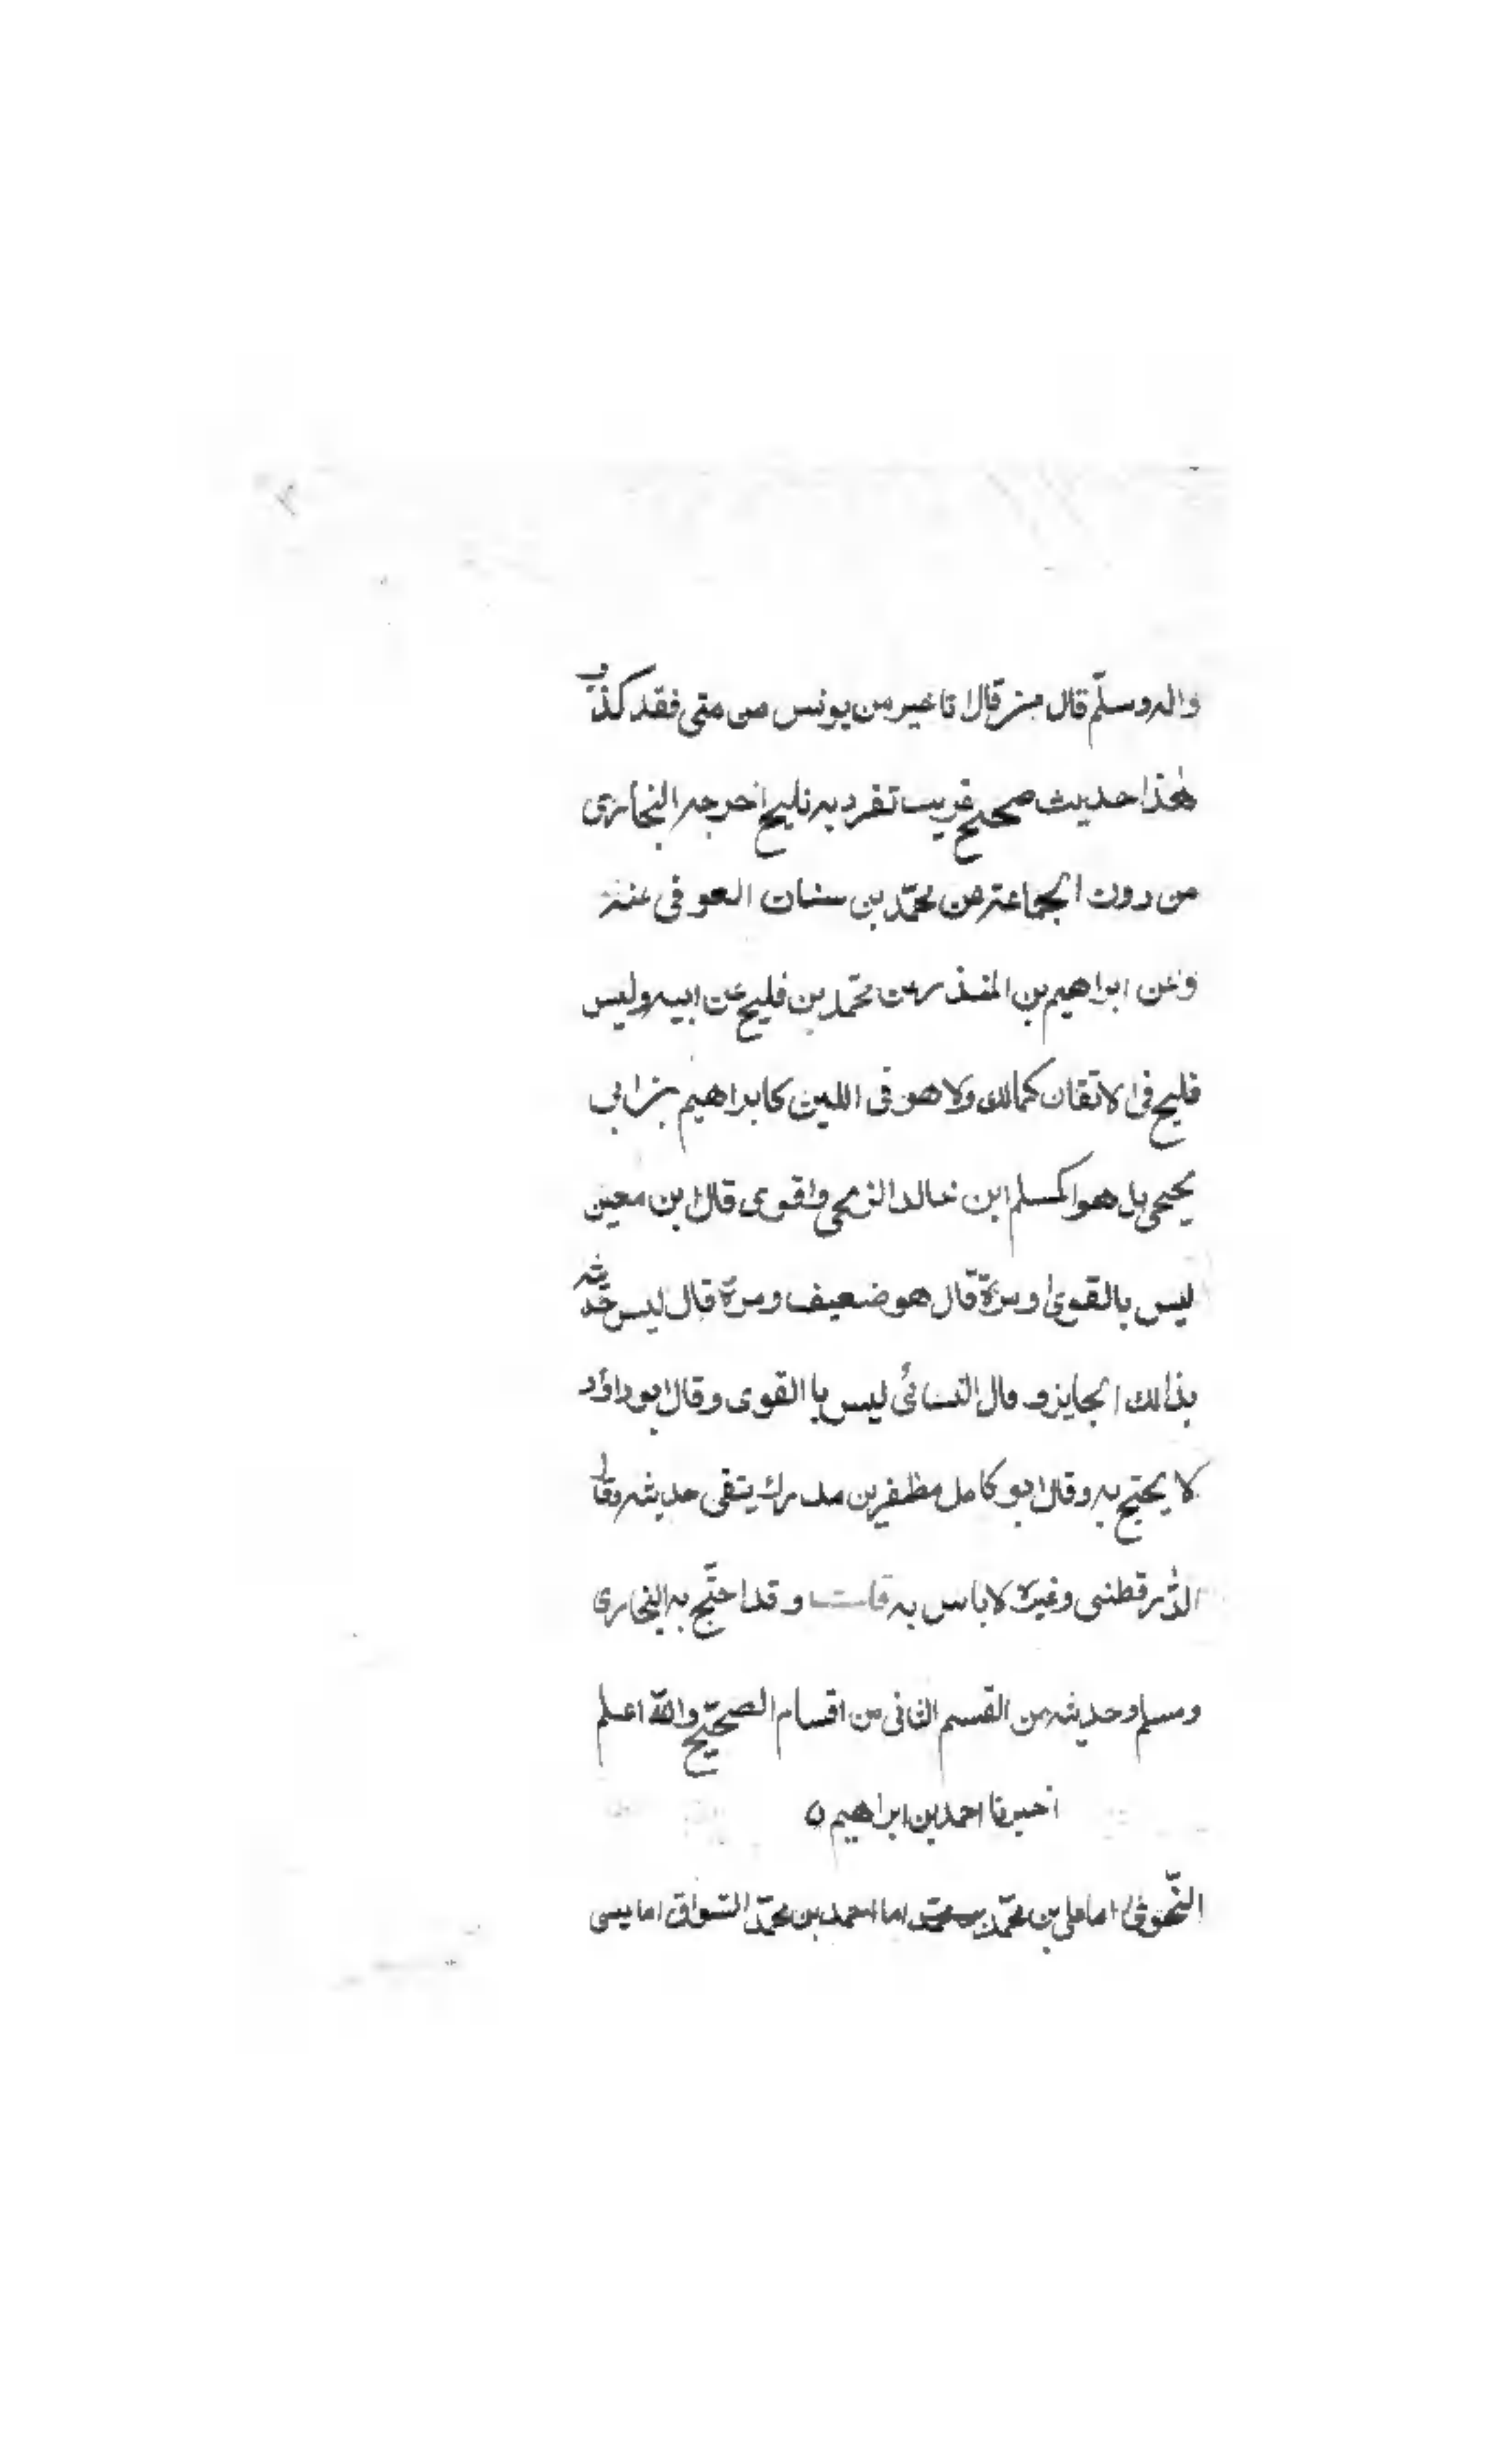 واله وسلّم قال من قال انا خير من يونس من متى فقد كذب
هٰذا حديث صحيح غريب تفرد به فليح اخرجه البخارى
من دون الجماعة عن محمّد بن سنان العوفى عنه
وعن ابراهيم بن المنذر عن محمّد بن فليح عن ابيه وليس
فليح فى الاتقان كمالك ولا هو فى اللين كابراهيم بن ابى
يحيى بل هو كمسلم ابن خالد الزمحى واقوى قال ابن معين
ليس بالقوى ومرّة قال هو ضعيف ومرة قال ليس حديثه
بذالك الجايز و قال النسائى ليس با القوى وقال ابو داؤد
لا يحتج به وقال ابو كامل مظفر بن مدرك يتقى حديثه وقال
الدّارقطنى وغيره لا باس به قلت وقد احتّج به البخارى
ومسلم وحديثه من القسم الثانى من اقسام الصحيّح والله اعلم
اخبرنا احمد بن ابراهيم ٥
النّحوى اما على بن محمّد اما احمد بن محمّد السواق اما